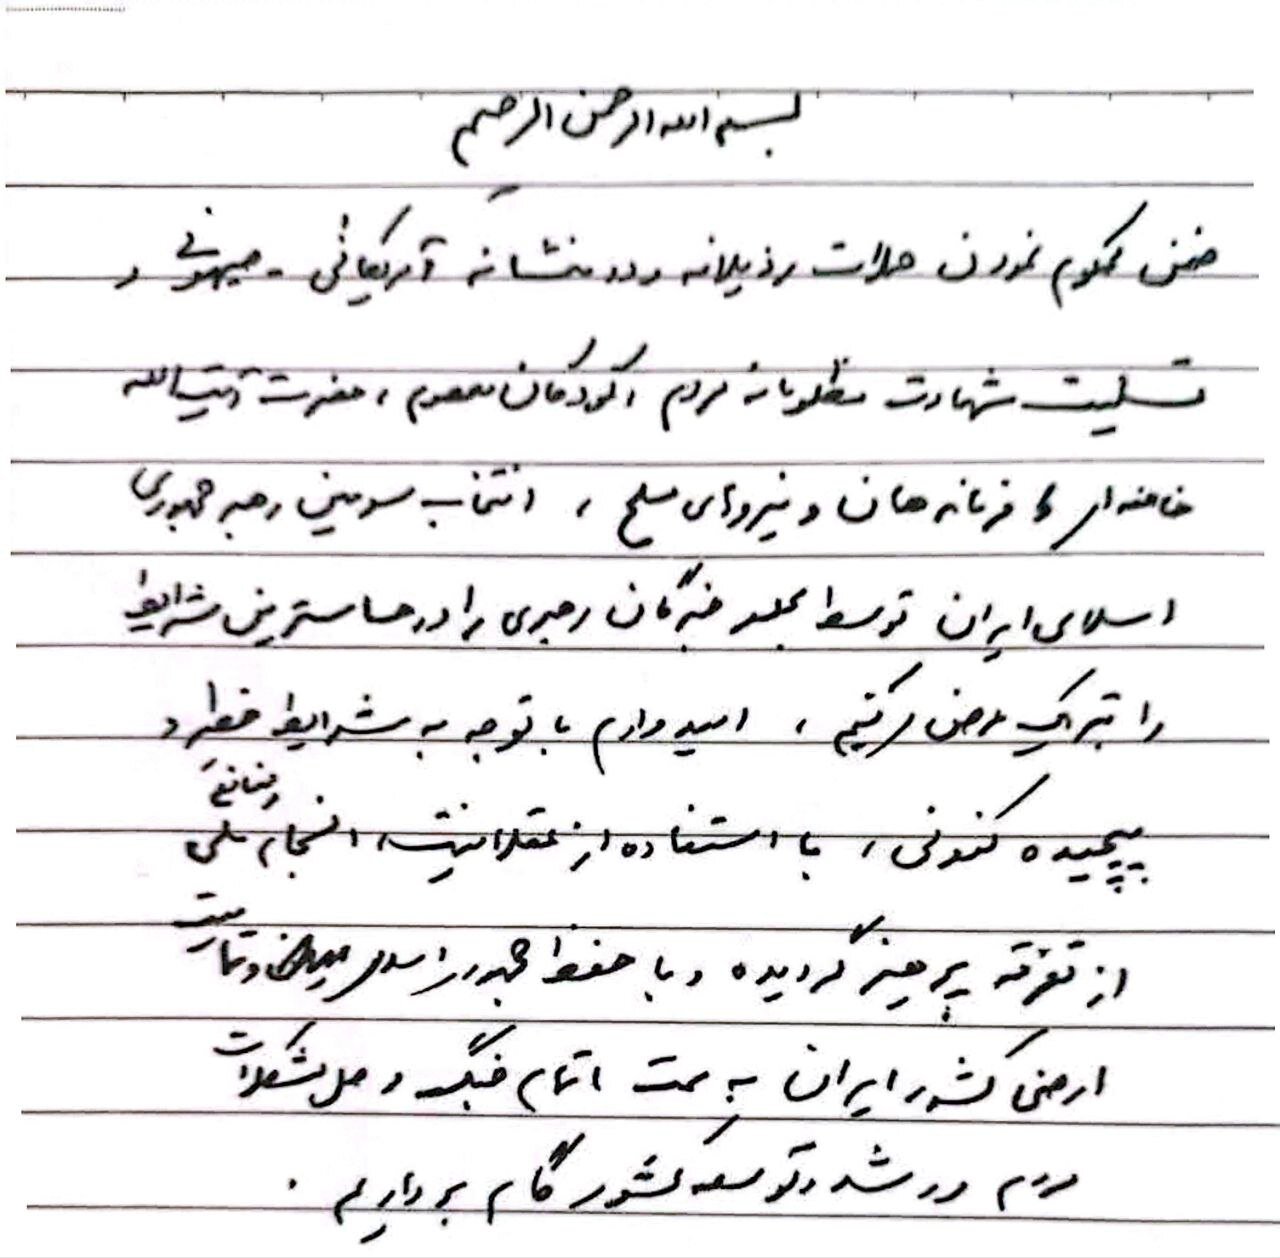 بسم الله الرحمن الرحیم
ضمن محکوم نمودن حملات رذیلانه و ددمنشانه آمریکائی - صیهونی و
تسلیت شهادت مظلومانه مردم ، کودکان معصوم ، حضرت آیت الله
خامنه ای و فرمانده هان و نیروهای مسلح ، انتخاب سومین رهبر جمهوری
اسلامی ایران توسط مجلس خبرگان رهبری را در حساسترین شرایط
را تبریک عرض می کنیم ، امیدوارم با توجه به شرایط خطیر و
پیچیده کنونی ، با استفاده از عقلانیت ، انسجام ملی و منافع
از تفرقه پرهیز گردیده و با حفظ جمهوری اسلامی و تمامیت
ارضی کشور ایران به سمت اتمام جنگ و حل مشکلات
مردم و رشد و توسعه کشور گام برداریم .